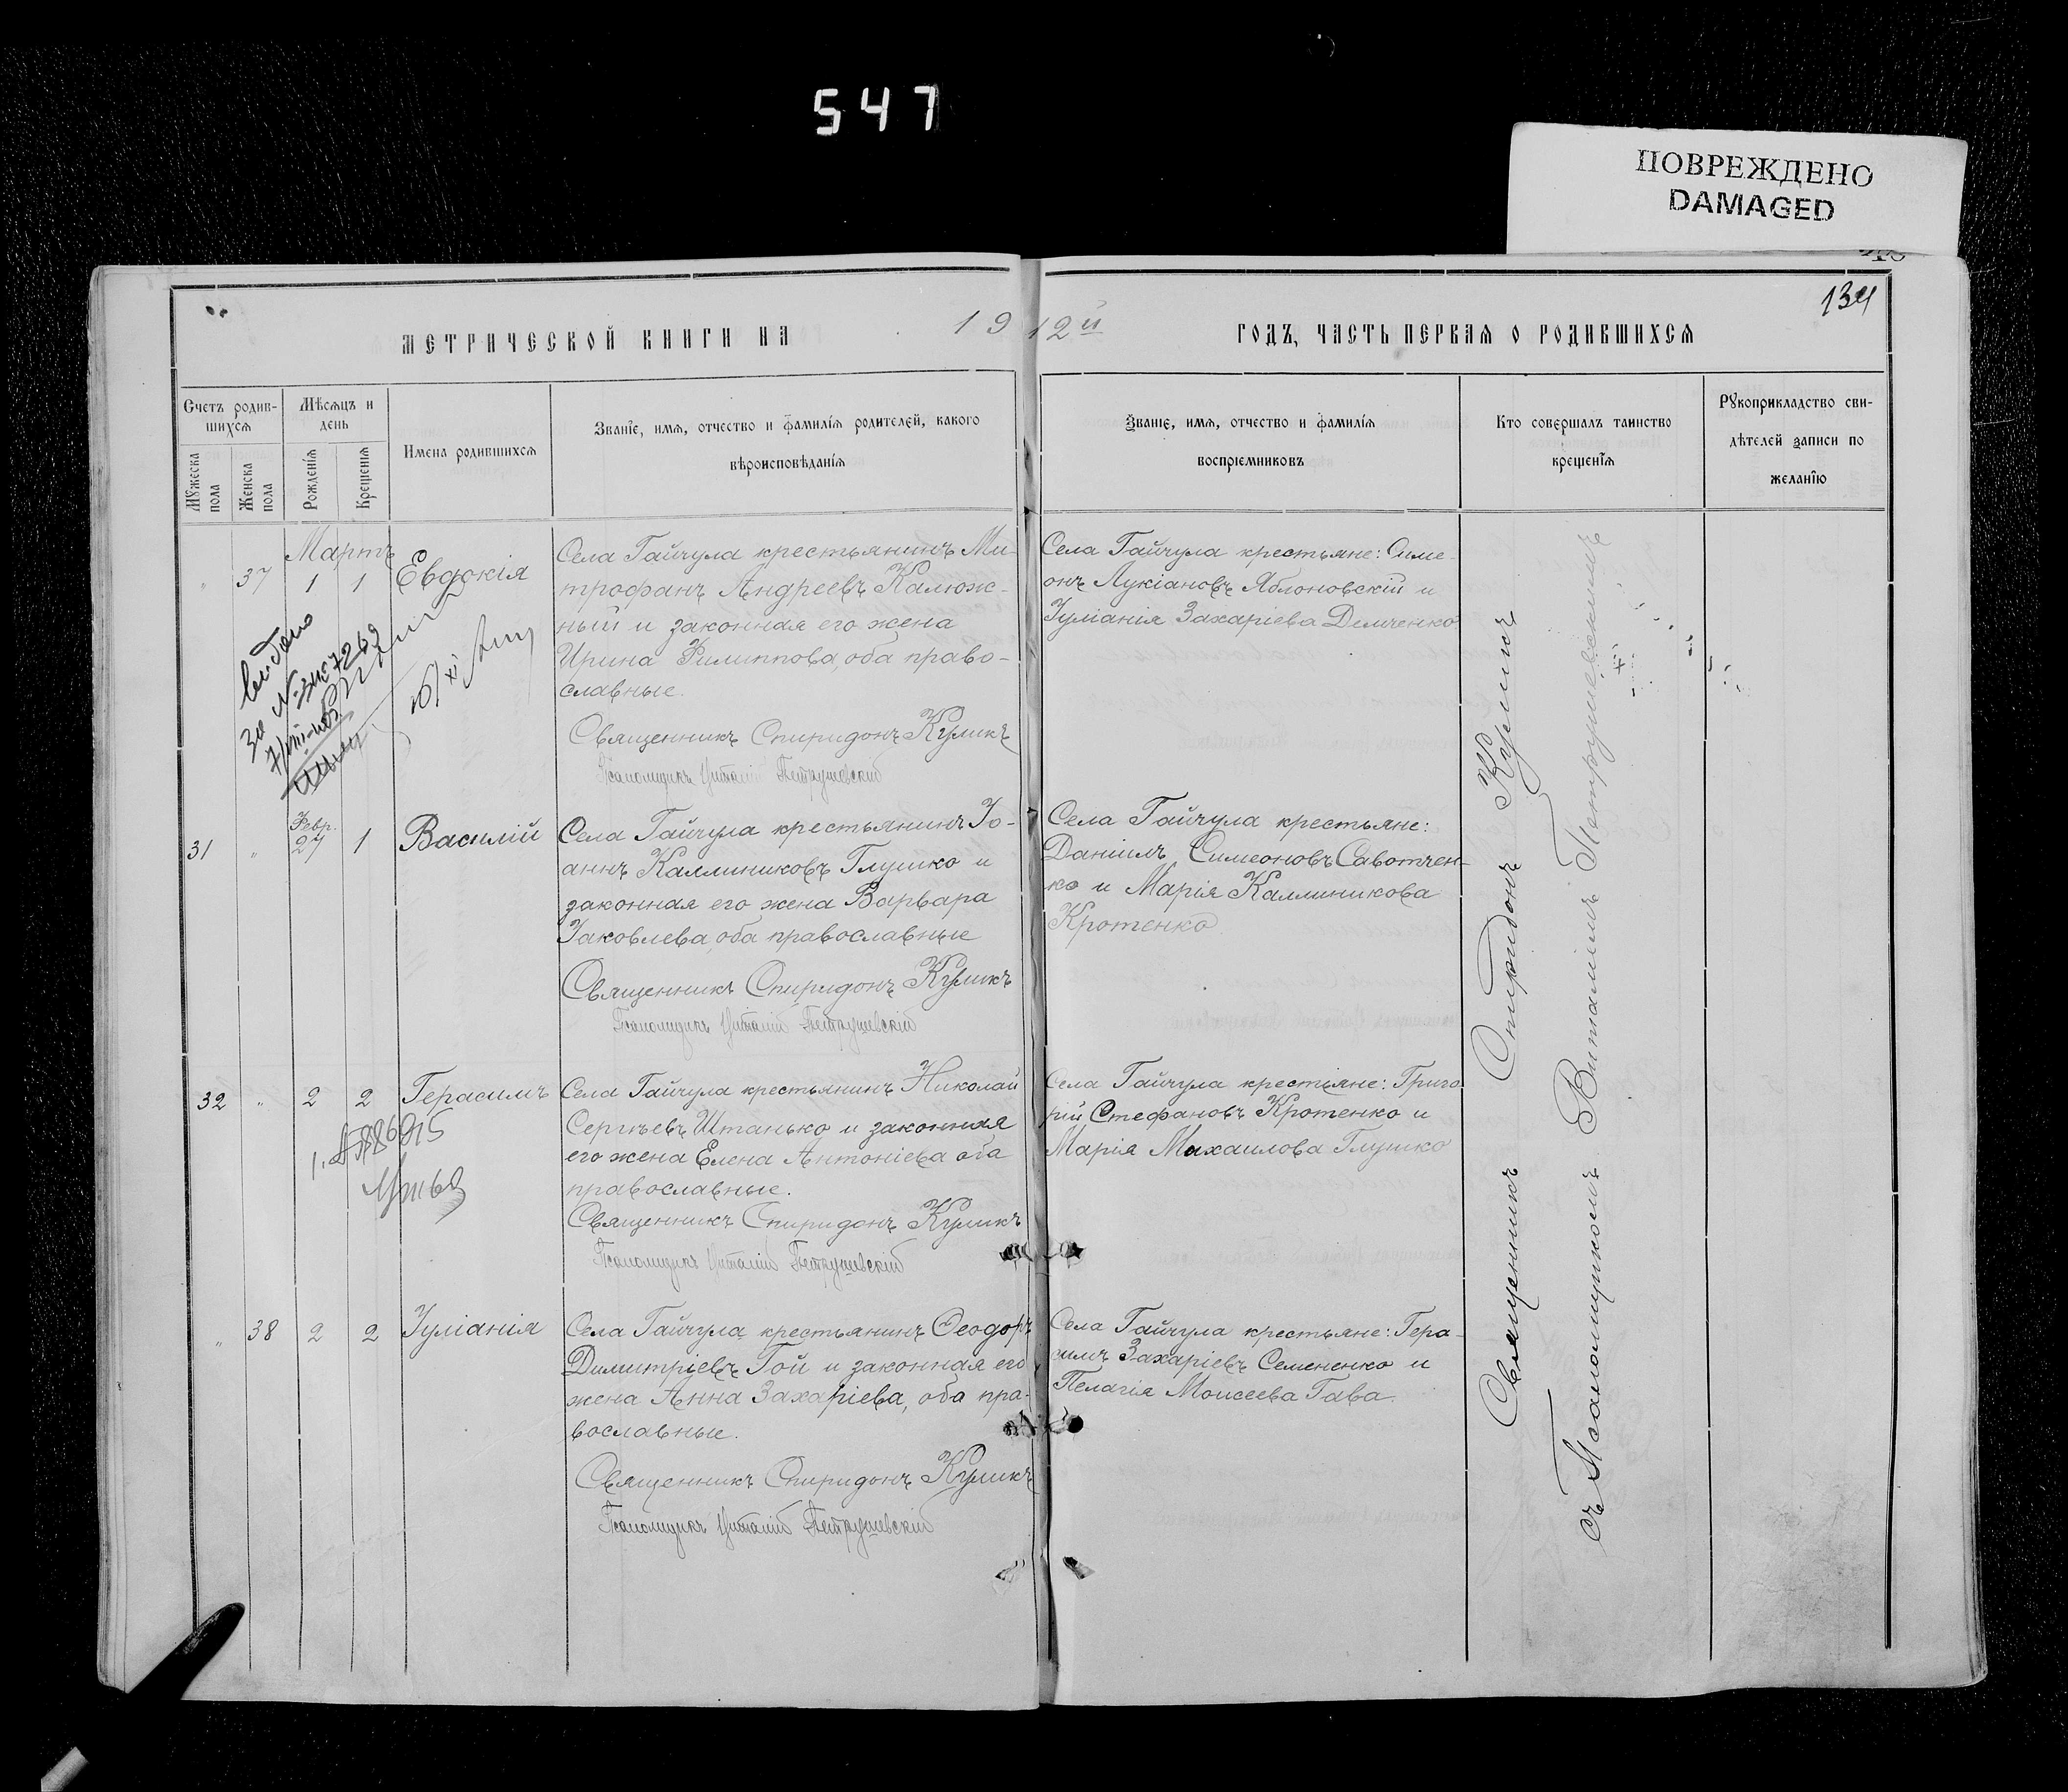 547
ПОВРЕЖДЕНО
DAMAGED
134
МЕТРИЧЕСКОЙ КНИГИ НА 1912й ГОДЪ, ЧАСТЬ ПЕРВАЯ О РОДИВШИХСЯ
Счетъ родив-
шихся
Мужеска пола
Женска пола
Мѣсяцъ и
день
Рожденія
Крещенія
Имена родившихся
Званіе, имя, отчество и фамилія родителей, какого
вѣроисповѣданія
Званіе, имя, отчество и фамилія
воспріемниковъ
Кто совершалъ таинство
крещенія
Рукоприкладство сви-
дѣтелей записи по
желанію
Мартъ
" 37 1 1 Евдокія
Села Гайчула крестьянинъ Ми-
трофанъ Андреевъ Калюж-
ный и законная его жена
Ирина Филиппова, оба право-
славные.
Священникъ Спиридонъ Куликъ
Псаломщикъ Виталій Петрушевскій
Села Гайчула крестьяне: Симе-
онъ Лукіановъ Яблоновскій и
Іуліанія Захаріева Демченко
Февр.
31 " 27 1 Василій
Села Гайчула крестьянинъ Іо-
аннъ Каллиниковъ Глушко и
законная его жена Варвара
Іаковлева, оба православные
Священникъ Спиридонъ Куликъ
Псаломщикъ Виталій Петрушевскій
Села Гайчула крестьяне:
Даніилъ Симеоновъ Савотчен-
ко и Марія Каллиникова
Кротенко.
32 " 2 2 Герасимъ
Села Гайчула крестьянинъ Николай
Сергѣевъ Штанько и законная
его жена Елена Антоніева оба
православные.
Священникъ Спиридонъ Куликъ
Псаломщикъ Виталій Петрушевскій
Села Гайчула крестьяне: Григо-
рій Стефановъ Кротенко и
Марія Михаилова Глушко
" 38 2 2 Іуліанія
Села Гайчула крестьянинъ Ѳеодоръ
Димитріевъ Гой и законная его
жена Анна Захаріева, оба пра-
вославные.
Священникъ Спиридонъ Куликъ
Псаломщикъ Виталій Петрушевскій
Села Гайчула крестьяне: Гера-
симъ Захаріевъ Семененко и
Пелагія Моисеева Гава.
Священникъ Спиридонъ Куликъ
съ Псаломщикомъ Виталіемъ Петрушевскимъ